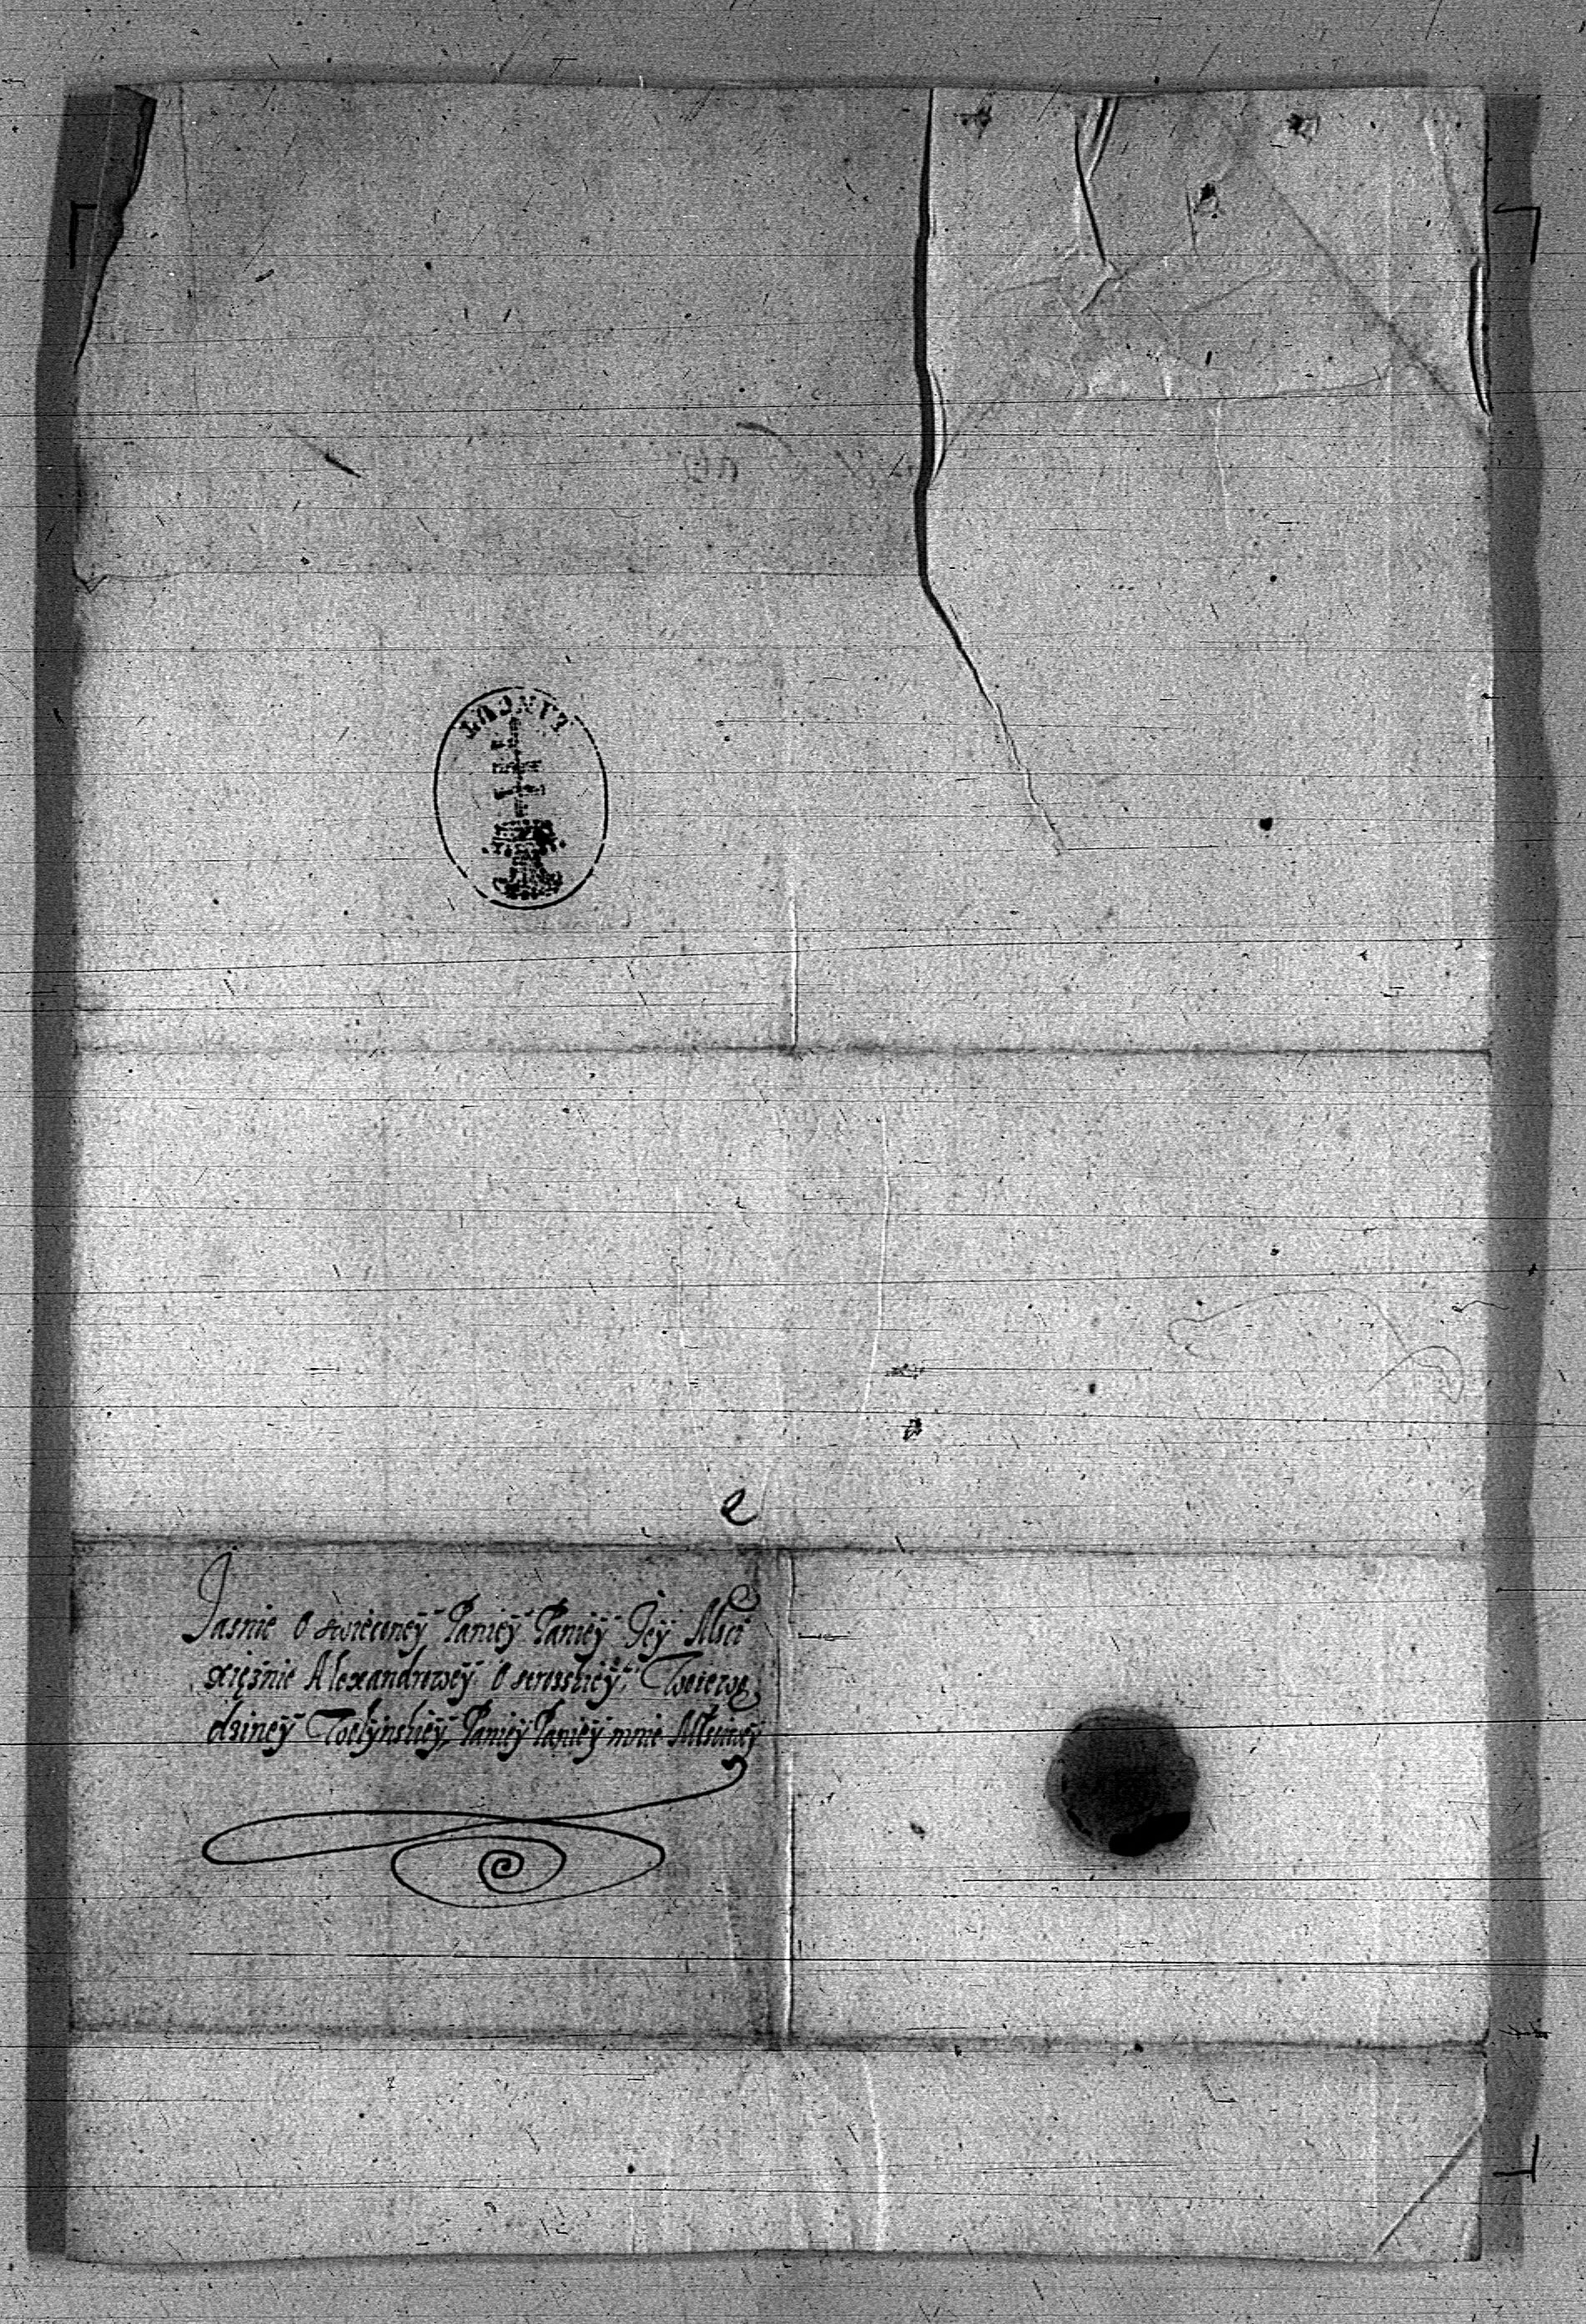 ŁAŃCUT
e
Jasnie Oswieconeÿ Panieÿ Panieÿ Jeÿ Msci
xiężnie Alexandroweÿ Ostrosskieÿ, Woiewo
dzineÿ Wołÿnskieÿ, Panieÿ Panieÿ mnie Msciweÿ